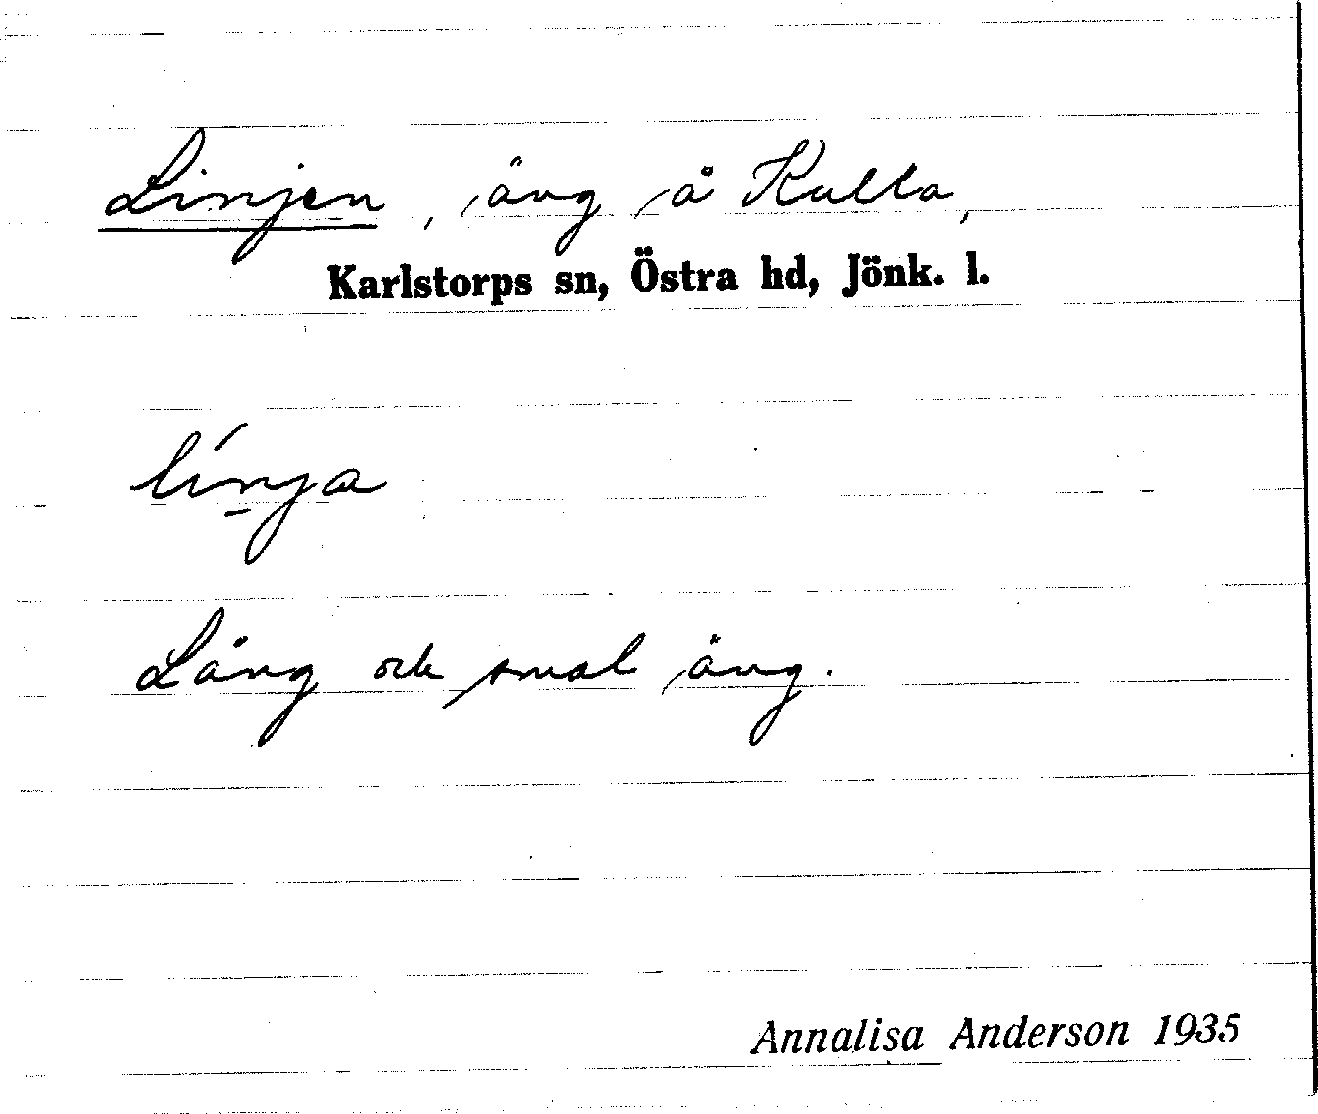 Linjen, äng å Kulla,
Karlstorps sn, Östra hd, Jönk. l.
línja
Lång och smal äng.
Annalisa Anderson 1935